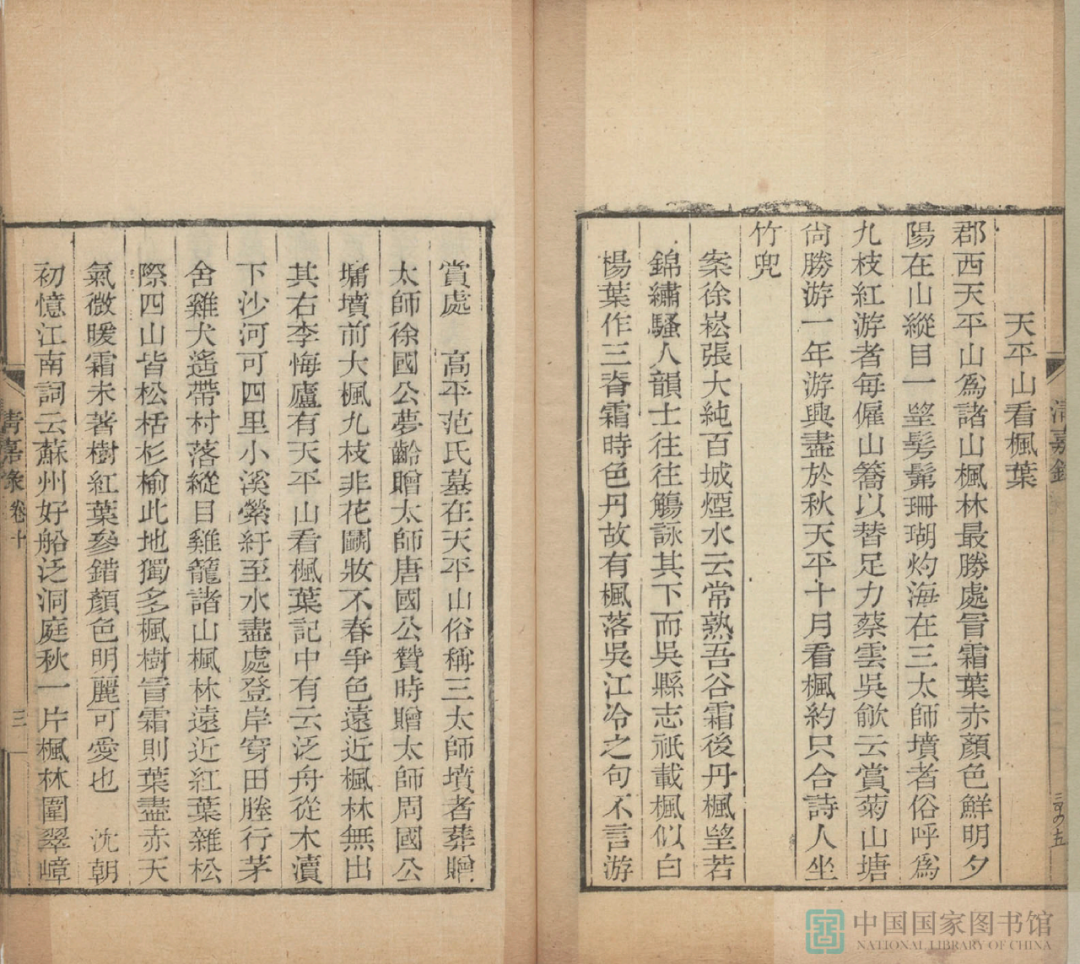 天平山看楓葉
郡西天平山爲諸山楓林最勝處冐霜葉赤顏色鮮明夕
陽在山縱目一朢髣髴珊瑚灼海在三太師墳者俗呼爲
九枝紅游者每僱山轎以替足力蔡雲吳歈云賞菊山塘
尙勝游一年游興盡於秋天平十月看楓約只合詩人坐
竹兜
案徐崧張大純百城煙水云常熟吾谷霜後丹楓朢若
錦繡騷人韻士往往觴詠其下而吳縣志祇載楓似白
楊葉作三脊霜時色丹故有楓落吳江冷之句不言游
賞處 高平范氏墓在天平山俗稱三太師墳者葬贈
太師徐國公夢齡贈太師唐國公贊時贈太師周國公
墉墳前大楓九枝非花鬭妝不春爭色遠近楓林無出
其右李悔廬有天平山看楓葉記中有云泛舟從木瀆
下沙河可四里小溪縈紆至水盡處登岸穿田塍行茅
舍雞犬遙帶村落縱目雞籠諸山楓林遠近紅葉雜松
際四山皆松栝杉榆此地獨多楓樹冐霜則葉盡赤天
氣微暖霜未著樹紅葉參錯顏色明麗可愛也 沈朝
初憶江南詞云蘇州好船泛洞庭秋一片楓林圍翠嶂
清嘉錄
清嘉彔 卷十
三
中国国家图书馆
NATIONAL LIBRARY OF CHINA